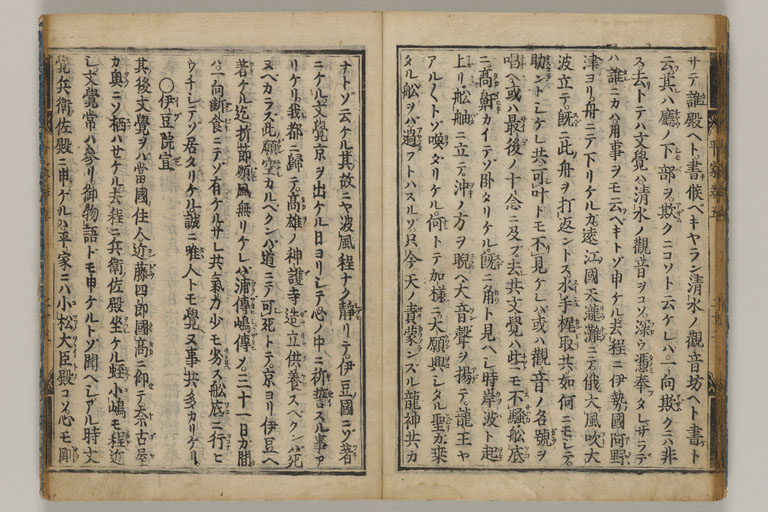 サテ誰殿ヘト書候ベキヤラン清水ノ観音坊ヘト書ト
云其ハ廳ノ下部ヲ欺クニコソト云ケレバ一向欺クニハ非
ス去トテハ文覺ハ清水ノ觀音ヲコソ深ウ憑奉ツタレサラデ
ハ誰ニカハ用事ヲモ云ベキトゾ申ケル去程ニ伊勢國阿野
津ヨリ舟ニテ下リケルガ遠江國天瀧灘ニテ俄大風吹大
波立テ既ニ此舟ヲ打返ントス水手梶取共如何ニモシテ
助ントシケレ共可叶トモ不見ケレバ或ハ觀音ノ名號ヲ
唱ヘ或ハ最後ノ十念ニ及ブ去共文覺ハ些モ不騒舩底
ニ高鼾カイテゾ卧タリケル既ニ角ト見ヘシ時岸波ト起
上リ舩舳ニ立テ沖ノ方ヲ睨ヘ大音聲ヲ揚テ龍王ヤ
アル〱トゾ喚タリケル何トテ加様ニ大願興シタル聖ガ乗
タル舩ヲバ過フトハスルゾ只今天ノ責蒙ンズル龍神共カ
ナトゾ云ケル其故ニヤ波風程ナク静リテ伊豆國ニゾ著
ニケル文覺京ヲ出ケル日ヨリシテ心ノ中ニ祈誓スル事アリ
リケリ我都ニ歸テ高雄ノ神護寺造立供養スベクンバ死
ヌベカラズ此願空カルベクンバ道ニテ可死トテ京ヨリ伊豆ヘ
著ケル迄折節順風無リケレバ浦傳嶋傳メ三十一日カ間
ハ一向断食ニテゾ有ケルサレ共氣力少モ劣ス舩底ニ行ヒ
ウチシテゾ居タリケル誠ニ唯人トモ覺ヌ事共多カリケリ
〇伊豆院宣
其後文覺ヲバ當國住人近藤四郎國高ニ仰テ奈古屋
カ奥ニゾ栖ハセケル去程ニ兵衛佐殿坐ケル蛭小嶋モ程近
シ文覺常ハ參リ御物語ドモ申ケルトゾ聞ヘシアル時文
覺兵衛佐殿ニ申ケルハ平家ニハ小松大臣殿コソ心モ剛